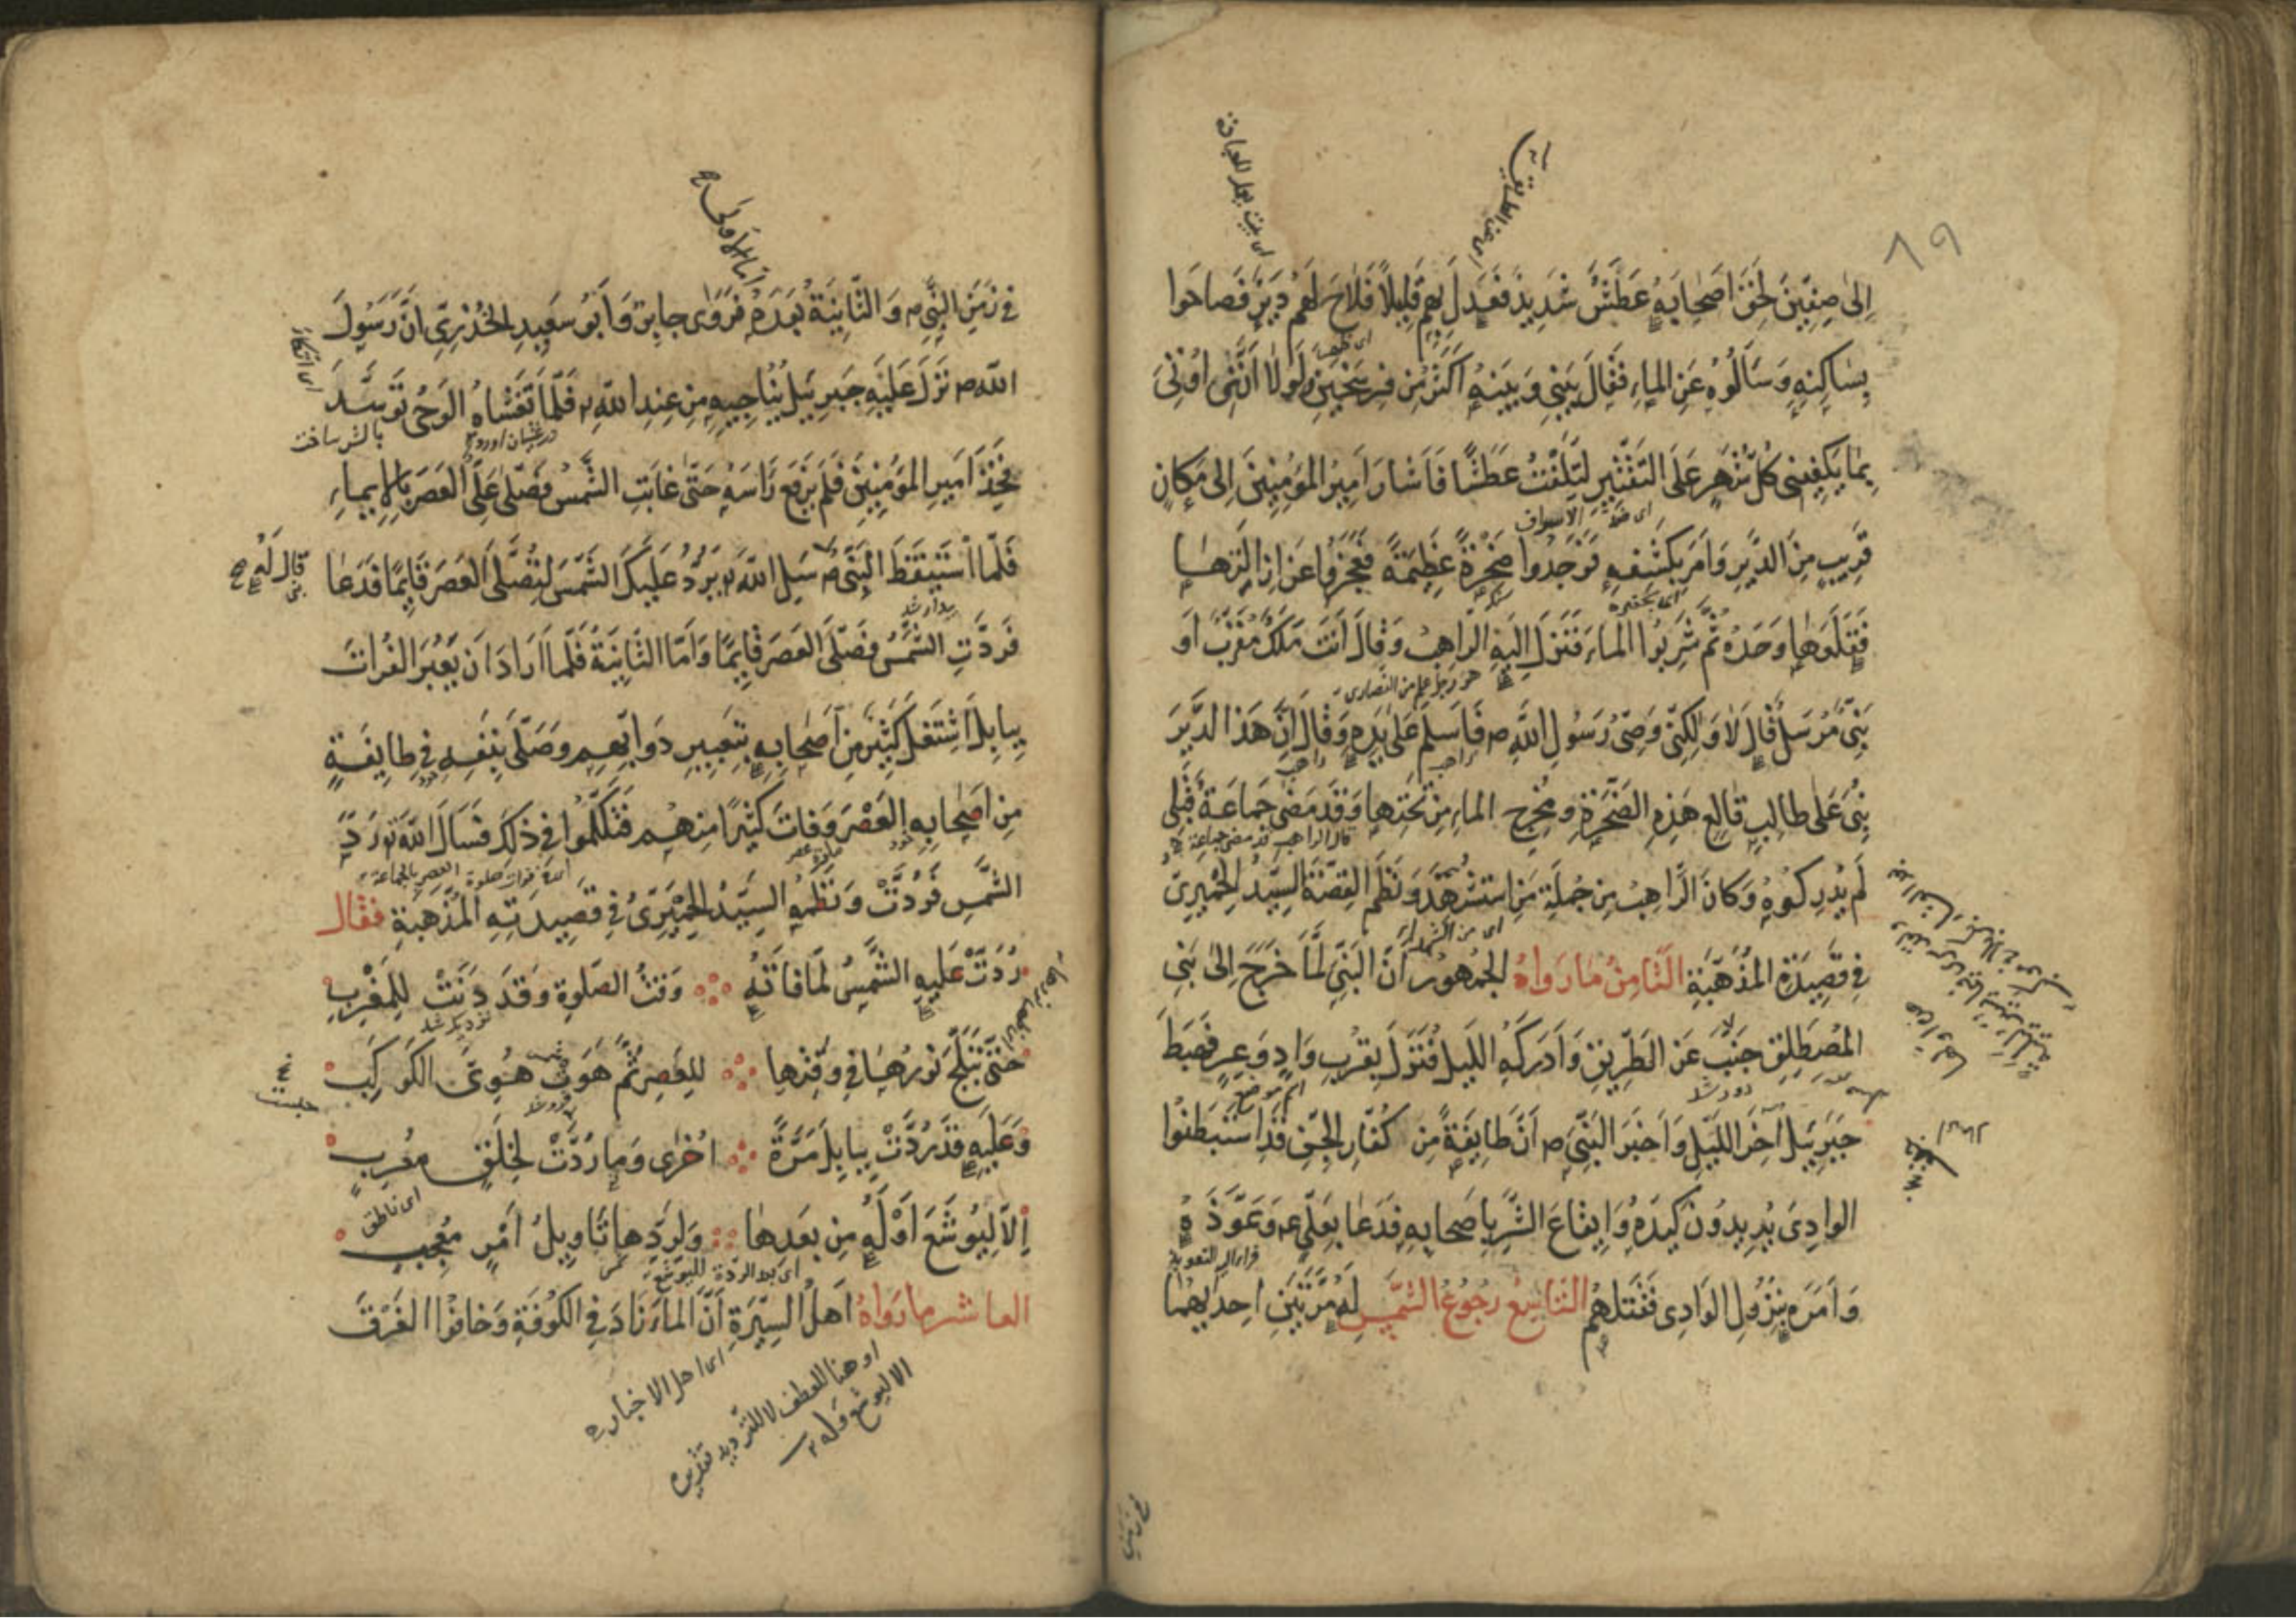 ٨٩
اى عن الطريق
اى بيت يعلم للعبادة
اِلىٰ صِفِّينَ لَحِقَ اَصْحٰابَهُ عَطَشٌ شَدِيدٌ فَعَدَلَ بِهِمْ قَلِيلاً فَلٰاحَ لَهُمْ دَيْرٌ فَصاحَوا
اى ظهر
بِسٰاكِنِهِ وَسَأَلُوهُ عَنِ المٰاءِ فَقٰالَ بَيْنِى وَبَيْنَهُ اَكْثَرُ مِنْ فَرْسَخَيْنِ وَلَولٰا اَنَّنِى اُوتٰىٰ
بِمٰا يَكْفِينِى كُلَّ شَهْرٍ عَلَى التَّقْتِيرِ لَتَلِفْتُ عَطَشًا فَاَشٰارَ اَمِيرُ المُؤمِنِينَ اِلىٰ مَكٰانٍ
اى ضد الاسراف
قَرِيبٍ مِنَ الدَّيْرِ وَاَمَرَ بِكَشْفِهِ فَوَجَدُوا صَخْرَةً عَظِيمَةً فَعَجَزُوا عَنْ اِزٰالَتِهٰا
اى بحفره
فَقَلَعَهٰا وَحْدَهُ ثُمَّ شَرِبُوا المٰاءَ فَنَزَلَ اِلَيْهِ الرّٰاهِبُ وَقٰالَ اَنْتَ مَلَكٌ مُقَرَّبٌ اَوْ
هو رجل عالم من النصارى
نَبِىٌّ مُرْسَلٌ قٰالَ لٰا وَلٰكِنِّى وَصِىُّ رَسُولِ اللّٰهِ ص فَاَسْلَمَ عَلىٰ يَدِهِ وَقٰالَ اِنَّ هَذَا الدَّيْرَ
راهب راهب
بُنِىَ عَلىٰ طٰالِبِ قٰالِعِ هَذِهِ الصَّخْرَةِ وَمُخْرِجِ المٰاءِ مِنْ تَحْتِهٰا وَقَدْ مَضىٰ جَمٰاعَةٌ قَبْلِى
قال الراهب قد مضى جماعة
لَمْ يُدْرِكُوهُ وَكٰانَ الرّٰاهِبُ مِنْ جُمْلَةِ مَنِ اسْتُشْهِدَ وَنَظَمَ القِصَّةَ السَّيِّدُ الحِمْيَرِىُّ
اى من الشهداء
فِى قَصِيدَةِ المُذَهَّبَةِ الثّٰامِنُ مٰا رَوٰاهُ الجُمْهُورُ اَنَّ النَّبِىَّ لَمّٰا خَرَجَ اِلىٰ بَنِى
المُصْطَلِقِ جَنَّبَ عَنِ الطَّرِيقِ وَاَدْرَكَهُ اللَّيلُ فَنَزَلَ بِقُرْبِ وَادٍ وَعِرٍ فَهَبَطَ
دور شد
اسم موضع
جَبْرَئِيلُ آخِرَ اللَّيْلِ وَاَخْبَرَ النَّبِىَّ ص اَنَّ طٰايِفَةً مِنْ كُفّٰارِ الجِنِّ قَدِ اسْتَبْطَنُوا
الوادِىَ يُرِيدُونَ كَيْدَهُ وَاِيقٰاعَ الشَّرِّ بِاَصْحٰابِهِ فَدَعٰا بِعَلِىٍّ ع وَعَوَّذَهُ
قراء التعويذ
وَاَمَرَهُ بِنُزُولِ الوَادِى فَقَتَلَهُمْ التّٰاسِعُ رُجُوعُ الشَّمْسِ لَهُ مَرَّتَيْنِ اِحْدٰيهُمٰا
امّا الاُولىٰ
فِى زَمَنِ النَّبِىِّ ص وَالثّٰانِيَةُ بَعْدَهُ فَرَوىٰ جٰابِرٌ وَاَبُو سَعِيدٍ الخُدْرِىِّ اَنَّ رَسُولَ
اى اتكاء
اللّٰهِ ص نَزَلَ عَلَيْهِ جَبْرَئِيلُ يُنٰاجِيهِ مِنْ عِنْدِ اللّٰهِ فَلَمّٰا تَغَشّٰاهُ الوَحْىُ تَوَسَّدَ
بالش ساخت
فَخِذَ اَمِيرِ المُؤمِنِينَ فَلَمْ يَرْفَعْ رَاْسَهُ حَتّٰى غٰابَتِ الشَّمْسُ فَصَلّىٰ عَلِىٌّ العَصْرَ بِالاِيمٰاءِ
فَلَمَّا اسْتَيْقَظَ النَّبِىُّ ص سَلِ اللّٰهَ يَرُدُّ عَلَيْكَ الشَّمْسَ لِتُصَلِّى العَصْرَ قٰايِمًا فَدَعٰا
قال لَهُ صح
بيدار شد
فَرُدَّتِ الشَّمْسُ فَصَلَّى العَصْرَ قٰايِمًا وَاَمَّا الثّٰانِيَةُ فَلَمّٰا اَرٰادَ اَنْ يَعْبُرَ الفُرٰاتَ
بِبٰابِلَ اشْتَغَلَ كَثِيرٌ مِنْ اَصْحٰابِهِ بِتَعْبِيرِ دَوٰابِّهِمْ وَصَلّىٰ بِنَفْسِهِ فِى طٰايِفَةٍ
مِنْ اَصْحٰابِهِ العَصْرَ وَفٰاتَ كَثِيرًا مِنْهُمْ فَتَكَلَّمُوا فِى ذٰلِكَ فَسَأَلَ اللّٰهَ رَدَّ
نماز عصر
اى فوات صلوة العصر بالجماعة
الشَّمْسِ فَرُدَّتْ وَنَظَمَهُ السَّيِّدُ الحِمْيَرِىُّ فِى قَصِيدَتِهِ المُذَهَّبَةِ فَقٰالَ
رُدَّتْ عَلَيْهِ الشَّمْسُ لَمّٰا فٰاتَهُ وَقْتُ الصَّلٰوةِ وَقَدْ دَنَتْ لِلمَغْرِبِ
نزديك شد
حَتّٰى تَبَلَّجَ نُورُهٰا فِى وَقْتِهٰا لِلعَصْرِ ثُمَّ هَوَتْ هُوِىَّ الكَوكَبِ
فرو شد
وَعَلَيْهِ قَدْ رُدَّتْ بِبٰابِلَ مَرَّةً اُخْرىٰ وَمٰا رُدَّتْ لِخَلْقٍ مُعْرِبِ
اى ناطق
اِلّٰا لِيُوشَعَ اَوْ لَهُ مِنْ بَعْدِهٰا وَلِرَدِّهٰا تَاْوِيلُ اَمْرٍ مُعْجِبِ
العٰاشر مٰا رَوٰاهُ اَهْلُ السِّيَرَةِ اَنَّ المٰاءَ زٰادَ فِى الكُوفَةِ وَخٰافُوا الغَرَقَ
اى اهل الاخبار
او هنا للعطف لا للترديد تقديره
الا ليوشع وله